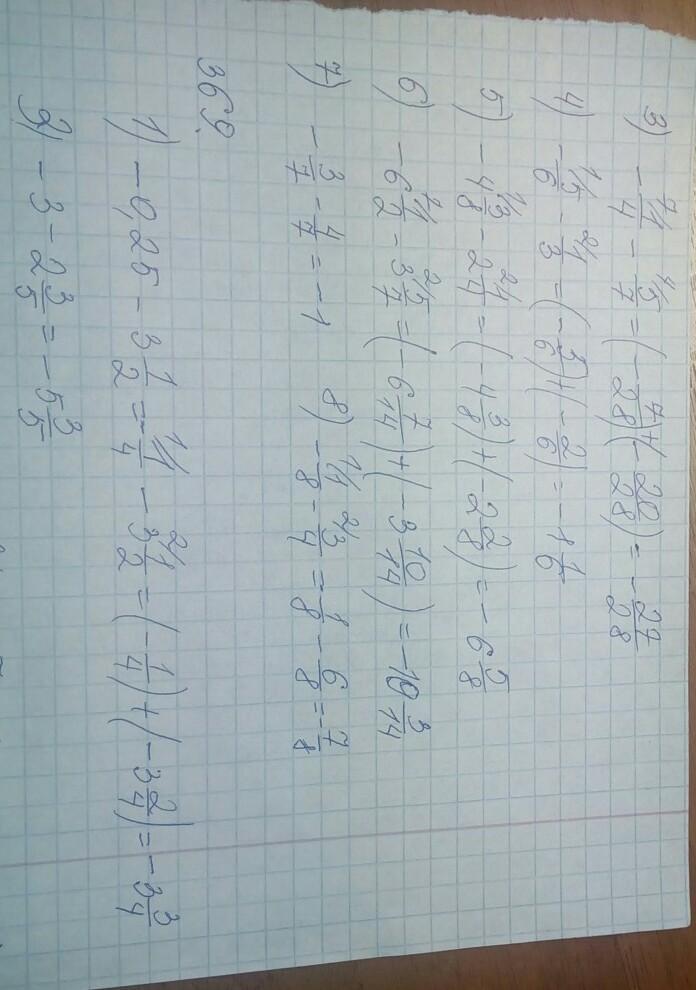 3) - 1/4 - 5/7 = (- 7/28) + (- 20/28) = - 27/28
4) - 5/6 - 1/3 = (- 5/6) + (- 2/6) = - 1 1/6
5) - 4 3/8 - 2 1/4 = (- 4 3/8) + (- 2 2/8) = - 6 5/8
6) - 6 1/2 - 3 5/7 = (- 6 7/14) + (- 3 10/14) = - 10 3/14
7) - 3/7 - 4/7 = - 1 8) - 1/8 - 3/4 = 1/8 - 6/8 = - 7/8
369.
1) - 0,25 - 3 1/2 = - 1/4 - 3 1/2 = (- 1/4) + (- 3 2/4) = - 3 3/4
2) - 3 - 2 3/5 = - 5 3/5